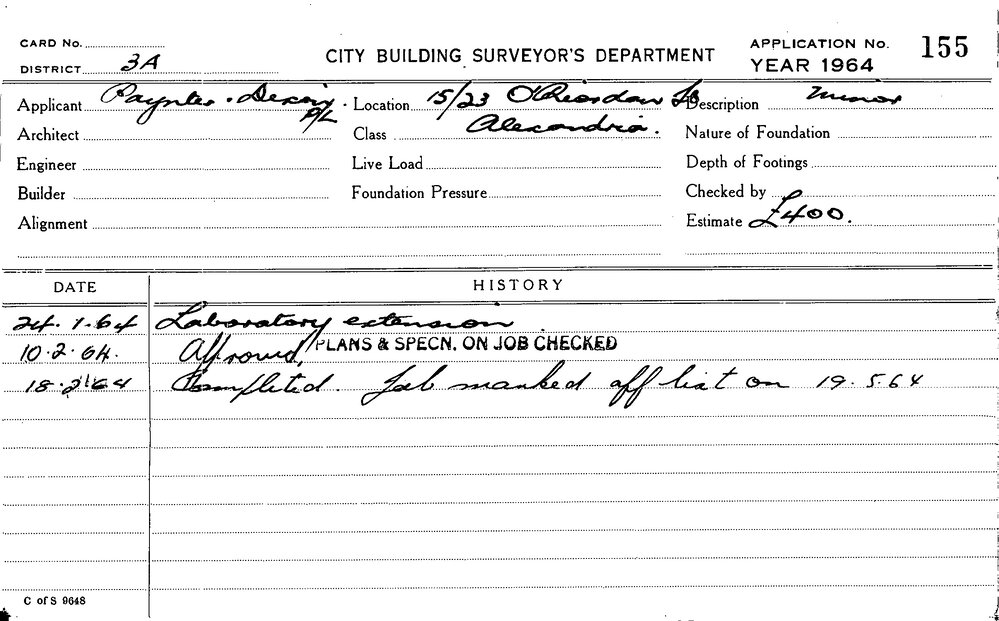 CARD No.
DISTRICT 3A
CITY BUILDING SURVEYOR'S DEPARTMENT
APPLICATION No. 155
YEAR 1964
Applicant Paynter & Dixon P/L
Location 15/23 O'Riordan St Alexandria.
Description Minor
Architect
Class
Nature of Foundation
Engineer
Live Load
Depth of Footings
Builder
Foundation Pressure
Checked by
Alignment
Estimate £400.
DATE HISTORY
24.1.64 Laboratory extension
10.2.64. Approved, PLANS & SPECN. ON JOB CHECKED
18.2.64 Completed. Job marked off list on 19.5.64
C of S 9648